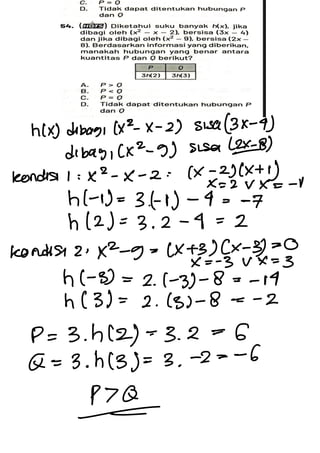 C. P = Q
D. Tidak dapat ditentukan hubungan P
dan Q
54. (HOTS) Diketahui suku banyak h(x), jika
dibagi oleh (x² – x – 2), bersisa (3x – 4)
dan jika dibagi oleh (x² – 9), bersisa (2x –
8). Berdasarkan informasi yang diberikan,
manakah hubungan yang benar antara
kuantitas P dan Q berikut?
P Q
3h(2) 3h(3)
A. P > Q
B. P < Q
C. P = Q
D. Tidak dapat ditentukan hubungan P
dan Q
h(x) dibagi (x²-x-2) sisa (3x-4)
dibagi (x²-9) sisa (2x-8)
kondisi 1 : x²-x-2 : (x-2)(x+1)
x=2 v x=-1
h(-1) = 3(-1) - 4 = -7
h(2) = 3.2 - 4 = 2
kondisi 2 : x²-9 = (x+3)(x-3)=0
x=-3 v x=3
h(-3) = 2.(-3)-8 = -14
h(3) = 2.(3)-8 = -2
P = 3.h(2) = 3.2 = 6
Q = 3.h(3) = 3.-2 = -6
P>Q